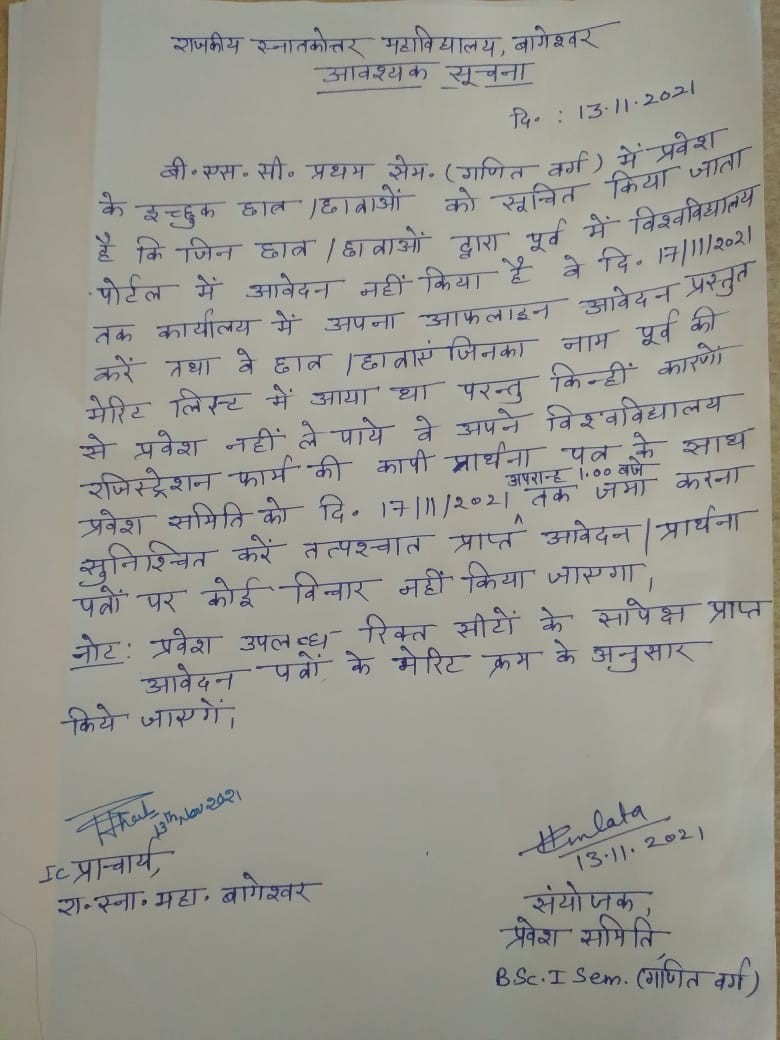 राजकीय स्नातकोत्तर महाविद्यालय, बागेश्वर
आवश्यक सूचना
दि. : 13.11.2021
बी.एस.सी. प्रथम सेम. (गणित वर्ग) में प्रवेश
के इच्छुक छात्र /छात्राओं को सूचित किया जाता
है कि जिन छात्र /छात्राओं द्वारा पूर्व में विश्वविद्यालय
पोर्टल में आवेदन नहीं किया है वे दि. 17/11/2021
तक कार्यालय में अपना आफलाइन आवेदन प्रस्तुत
करें तथा वे छात्र /छात्राएं जिनका नाम पूर्व की
मेरिट लिस्ट में आया था परन्तु किन्हीं कारणों
से प्रवेश नहीं ले पाये वे अपने विश्वविद्यालय
रजिस्ट्रेशन फार्म की कापी प्रार्थना पत्र के साथ
अपरान्ह 1.00 बजे
प्रवेश समिति को दि. 17/11/2021 तक जमा करना
सुनिश्चित करें तत्पश्चात प्राप्त आवेदन/प्रार्थना
पत्रों पर कोई विचार नहीं किया जाएगा,
नोट: प्रवेश उपलब्ध रिक्त सीटों के सापेक्ष प्राप्त
आवेदन पत्रों के मेरिट क्रम के अनुसार
किये जाएगें,
13th Nov 2021
Ic प्राचार्य,
रा.स्ना.महा. बागेश्वर
Hemlata
13.11.2021
संयोजक,
प्रवेश समिति,
BSc. I Sem. (गणित वर्ग)